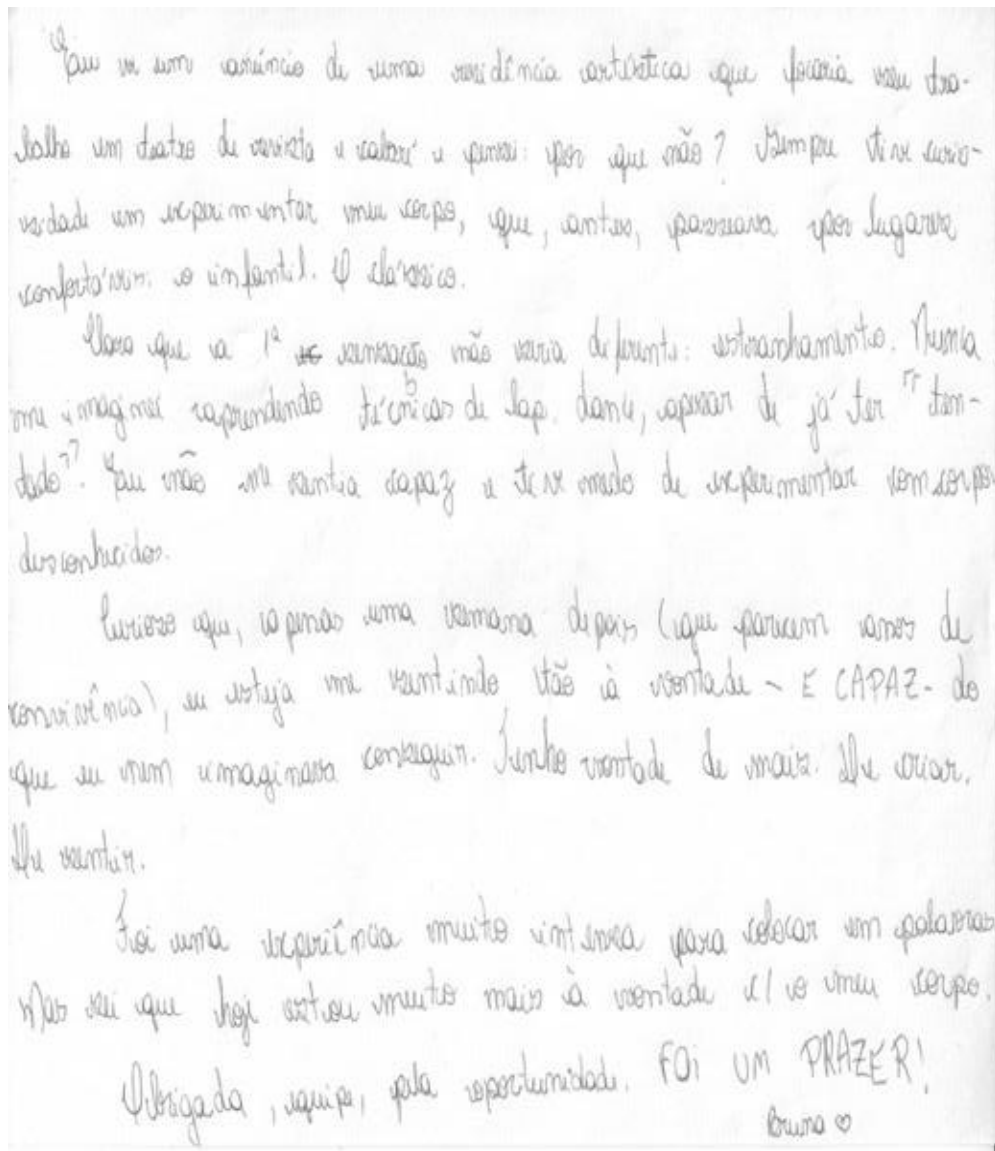 Eu vi um anúncio de uma residência artística que focaria seu tra-
balho em teatro de revista e cabaré e pensei: por que não? Sempre tive curio-
sidade em experimentar meu corpo, que, antes, passeava por lugares
confortáveis: o infantil. O clássico.
Claro que a 1ª sensação não seria diferente: estranhamento. Nunca
me imaginei aprendendo técnicas de lap dance, apesar de já ter "ten-
tado". Eu não me sentia capaz e tive medo de experimentar com corpos
desconhecidos.
Curioso que, apenas uma semana depois (que parecem anos de
convivência), eu esteja me sentindo tão à vontade - E CAPAZ - do
que eu nem imaginava conseguir. Tenho vontade de mais. De criar.
De sentir.
Foi uma experiência muito intensa para colocar em palavras
Mas sei que hoje estou muito mais à vontade c/ o meu corpo.
Obrigada, equipe, pela oportunidade. FOi UM PRAZER!
Bruna ♡